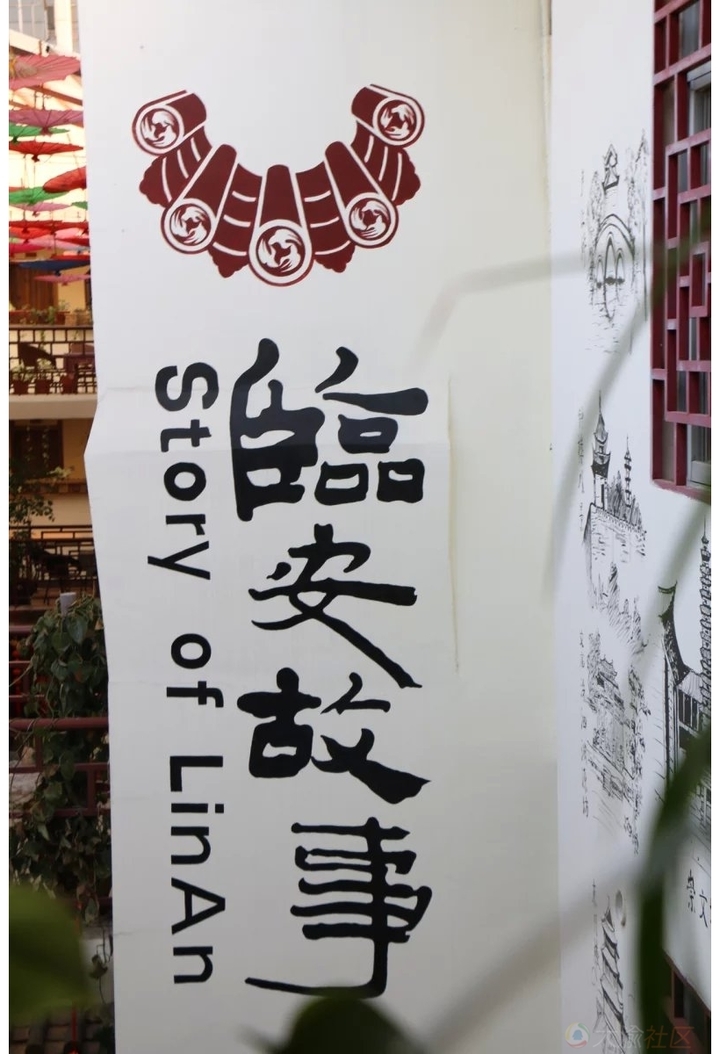 臨安故事
Story of LinAn
崇文
大渝社区